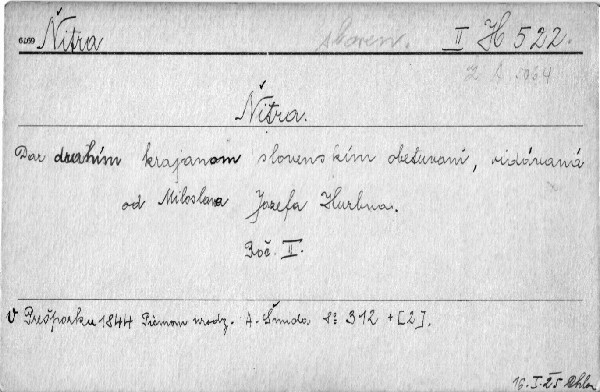 Ňitra slovens. II H 522.
Ňitra.
Dar drahím krajanom slovenskím obetuvaní, vidávaná
od Miloslava Jozefa Hurbna.
Roč. II.
V Prešporku 1844 Písmom urodz. A. Šmida 8° 312 + [2].
16. I. 25